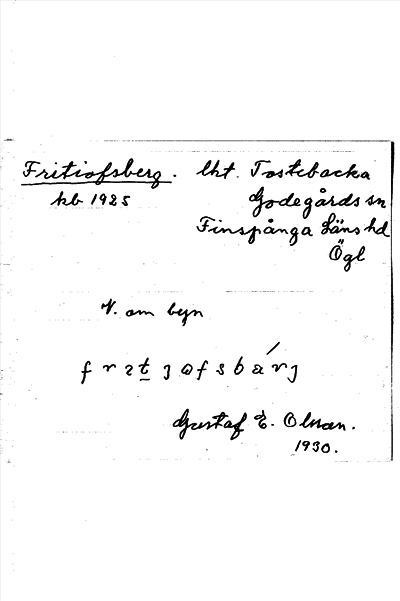 Fritiofsberg. lht. Tostebacka
kb 1925 Godegårds sn
Finspånga Läns hd
Ögl
N. om byn
Gustaf E. Olsson.
1930.